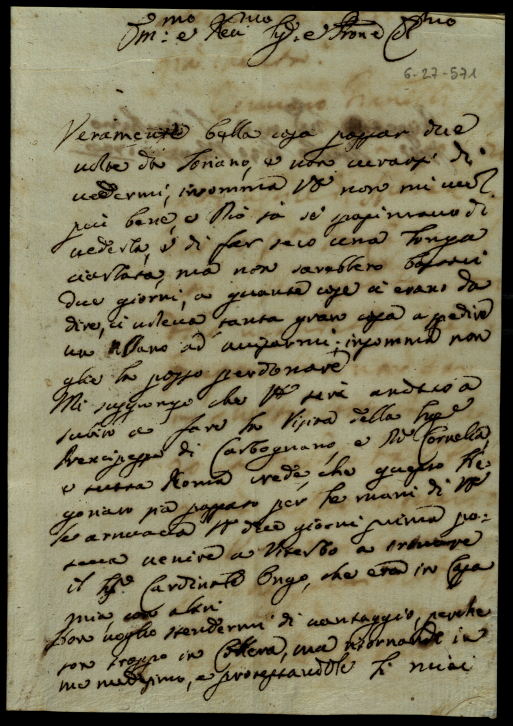 Ill.mo e Rev.mo Sig.r e Prone Col.mo
6-27-571
Veramente bella cosa passar due
volte da Soriano, e non curarsi di
vedermi, insomma VS non mi vuol
più bene, e Dio sà se spasimavo di
vederla, e di far seco una longa
ciarlata, ma non sarebbero bastati
due giorni, a quante cose ci erano da
dire, ci voleva tanta gran cosa a spedire
un Villano ad avisarmi; insomma non
glie la posso perdonare
Mi suppongo che VS sarà andato a
subito a fare la Visita della Sig.ra
Prencipessa di Carbognano e D. Cornelia,
e tutta Roma crede, che questo Ne
goziato sia passato per le mani di VS
se arrivava VS due giorni prima po-
teva venire a Viterbo a trovare
il Sig. Cardinale Origo, che era in Casa
mia con altri
Non voglio stendermi di vantaggio, perche
son troppo in Collera, ma ritornando in
me medesimo, e protestandole li miei